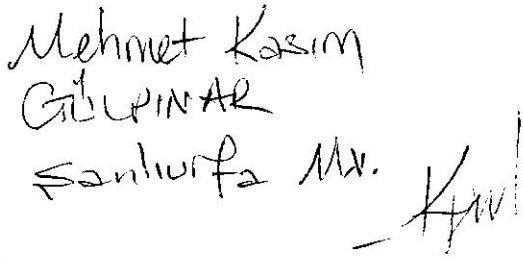 Mehmet Kasım
GÜLPINAR
Şanlıurfa Mv.